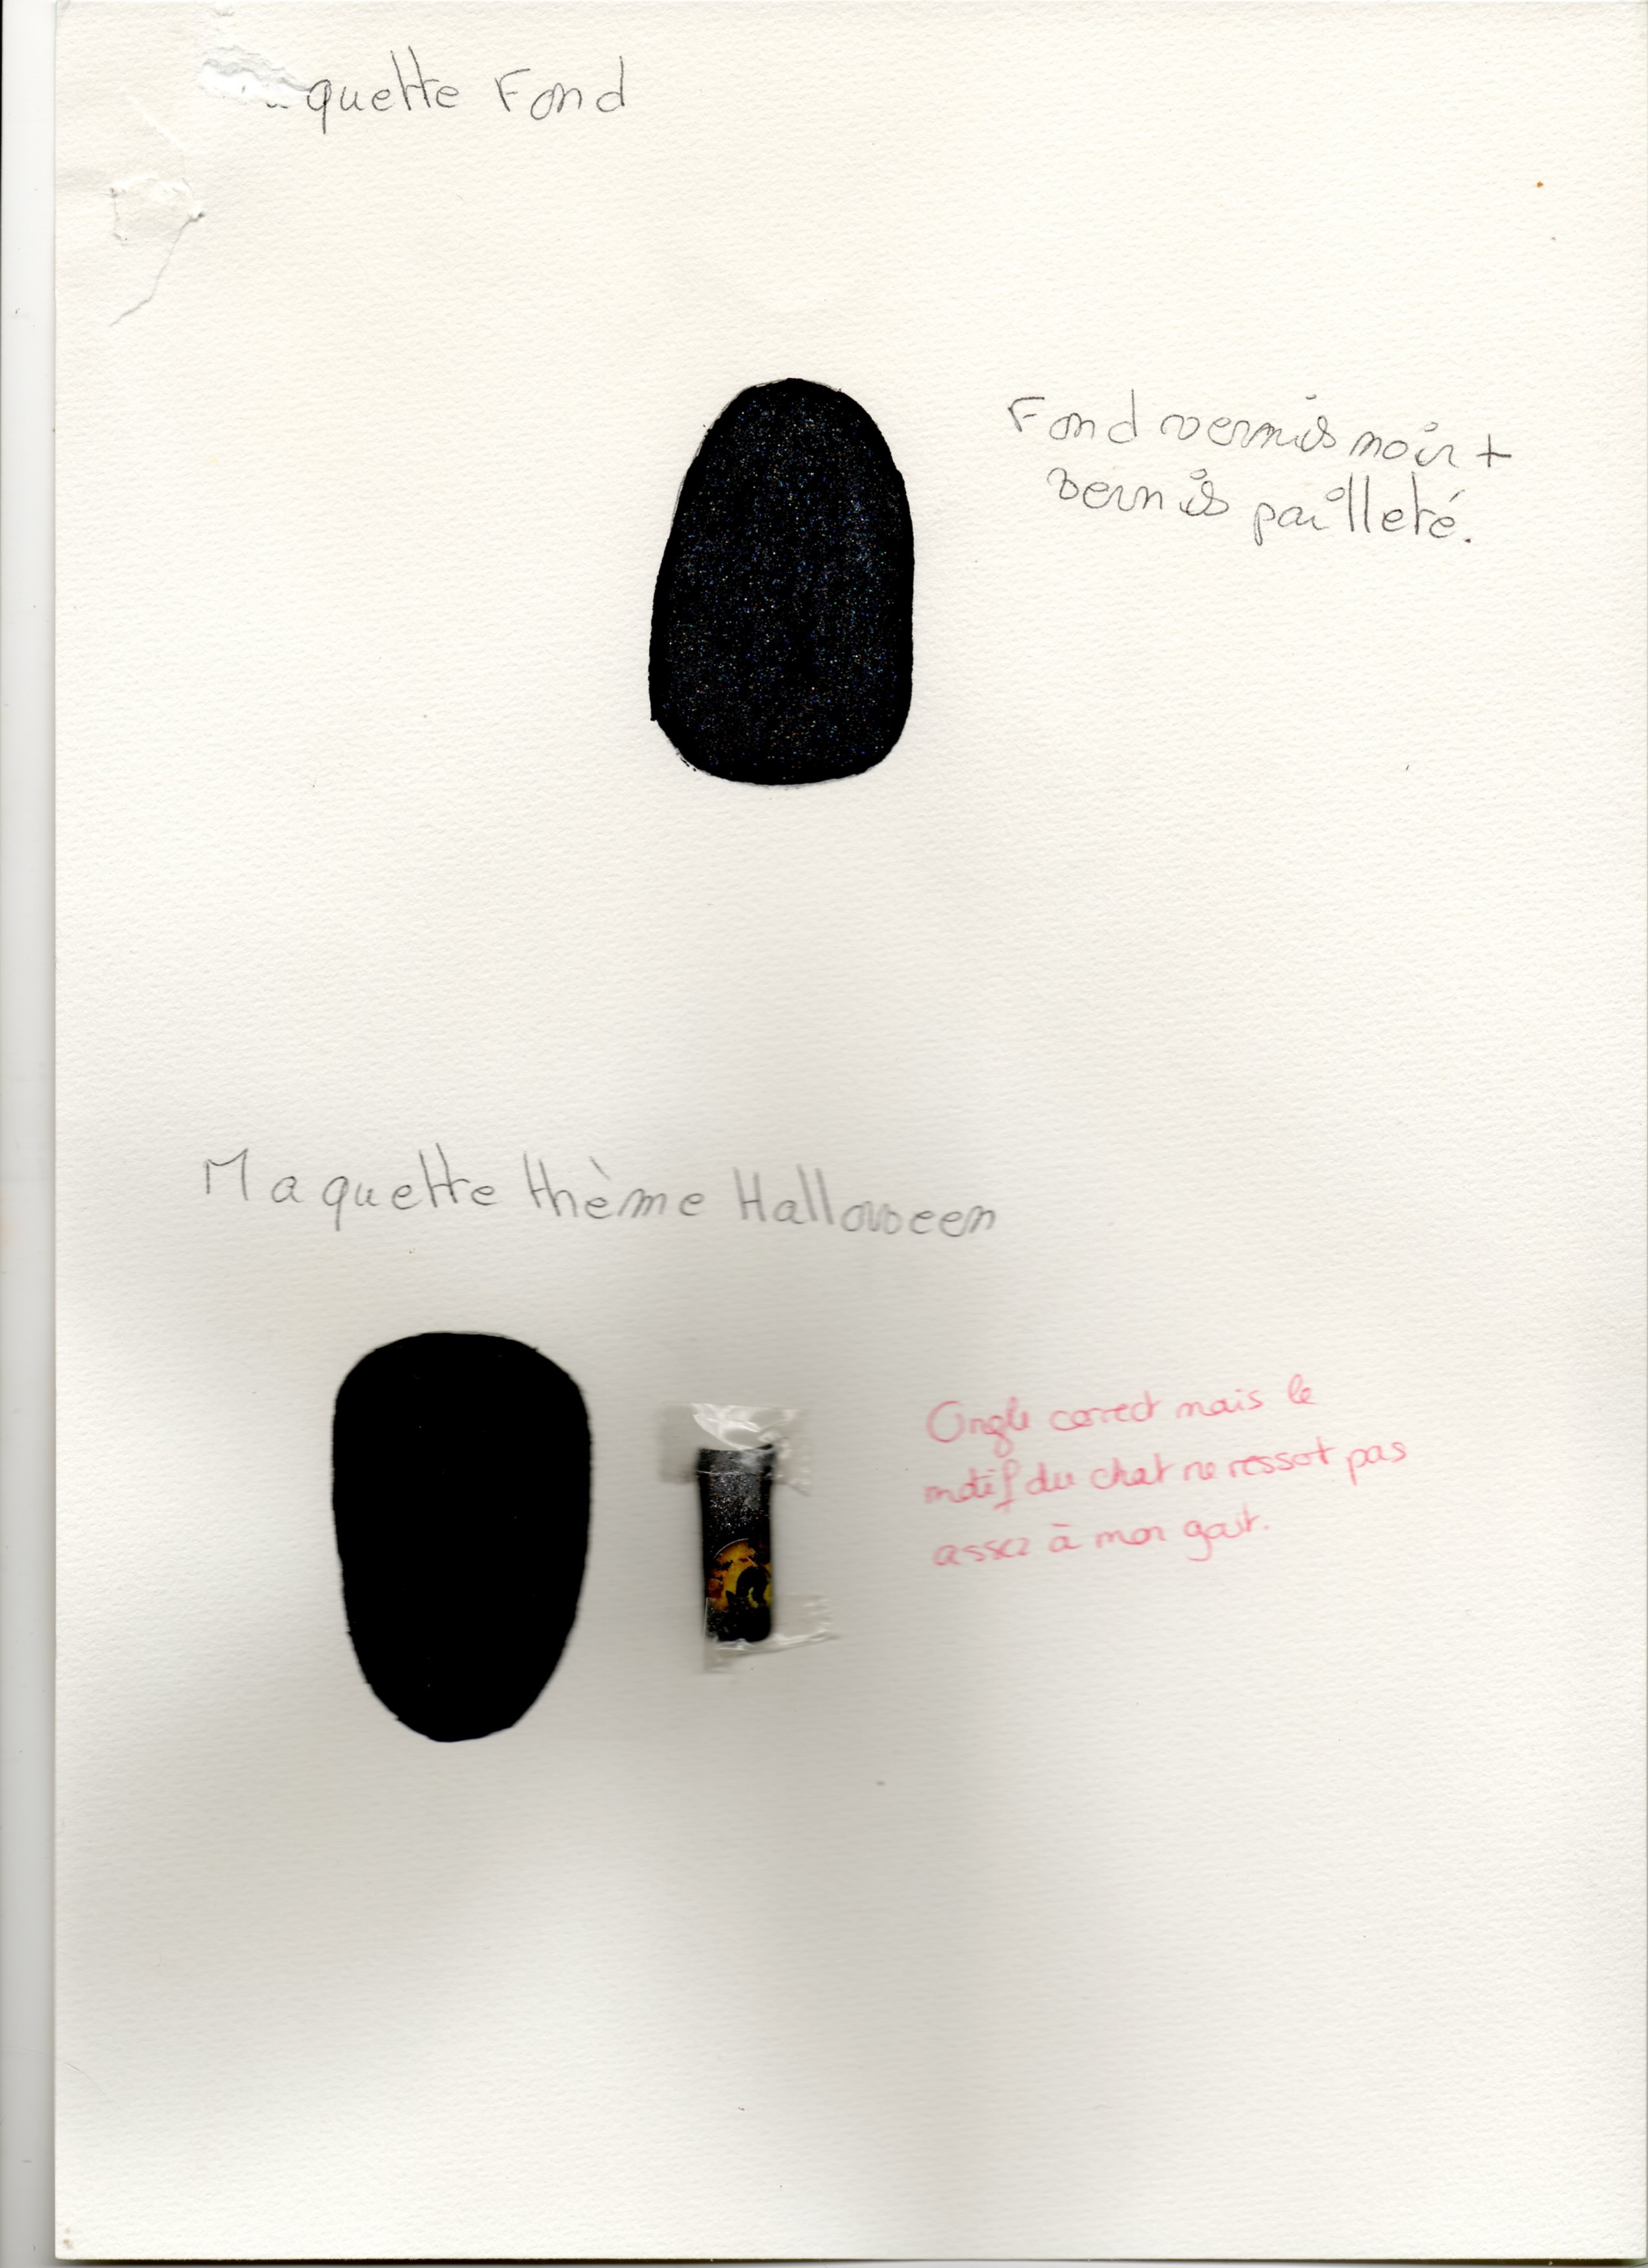 quette Fond
Fond vernis noir +
vernis pailleté.
Maquette thème Halloween
Ongle correct mais le
motif du chat ne ressort pas
assez à mon goût.